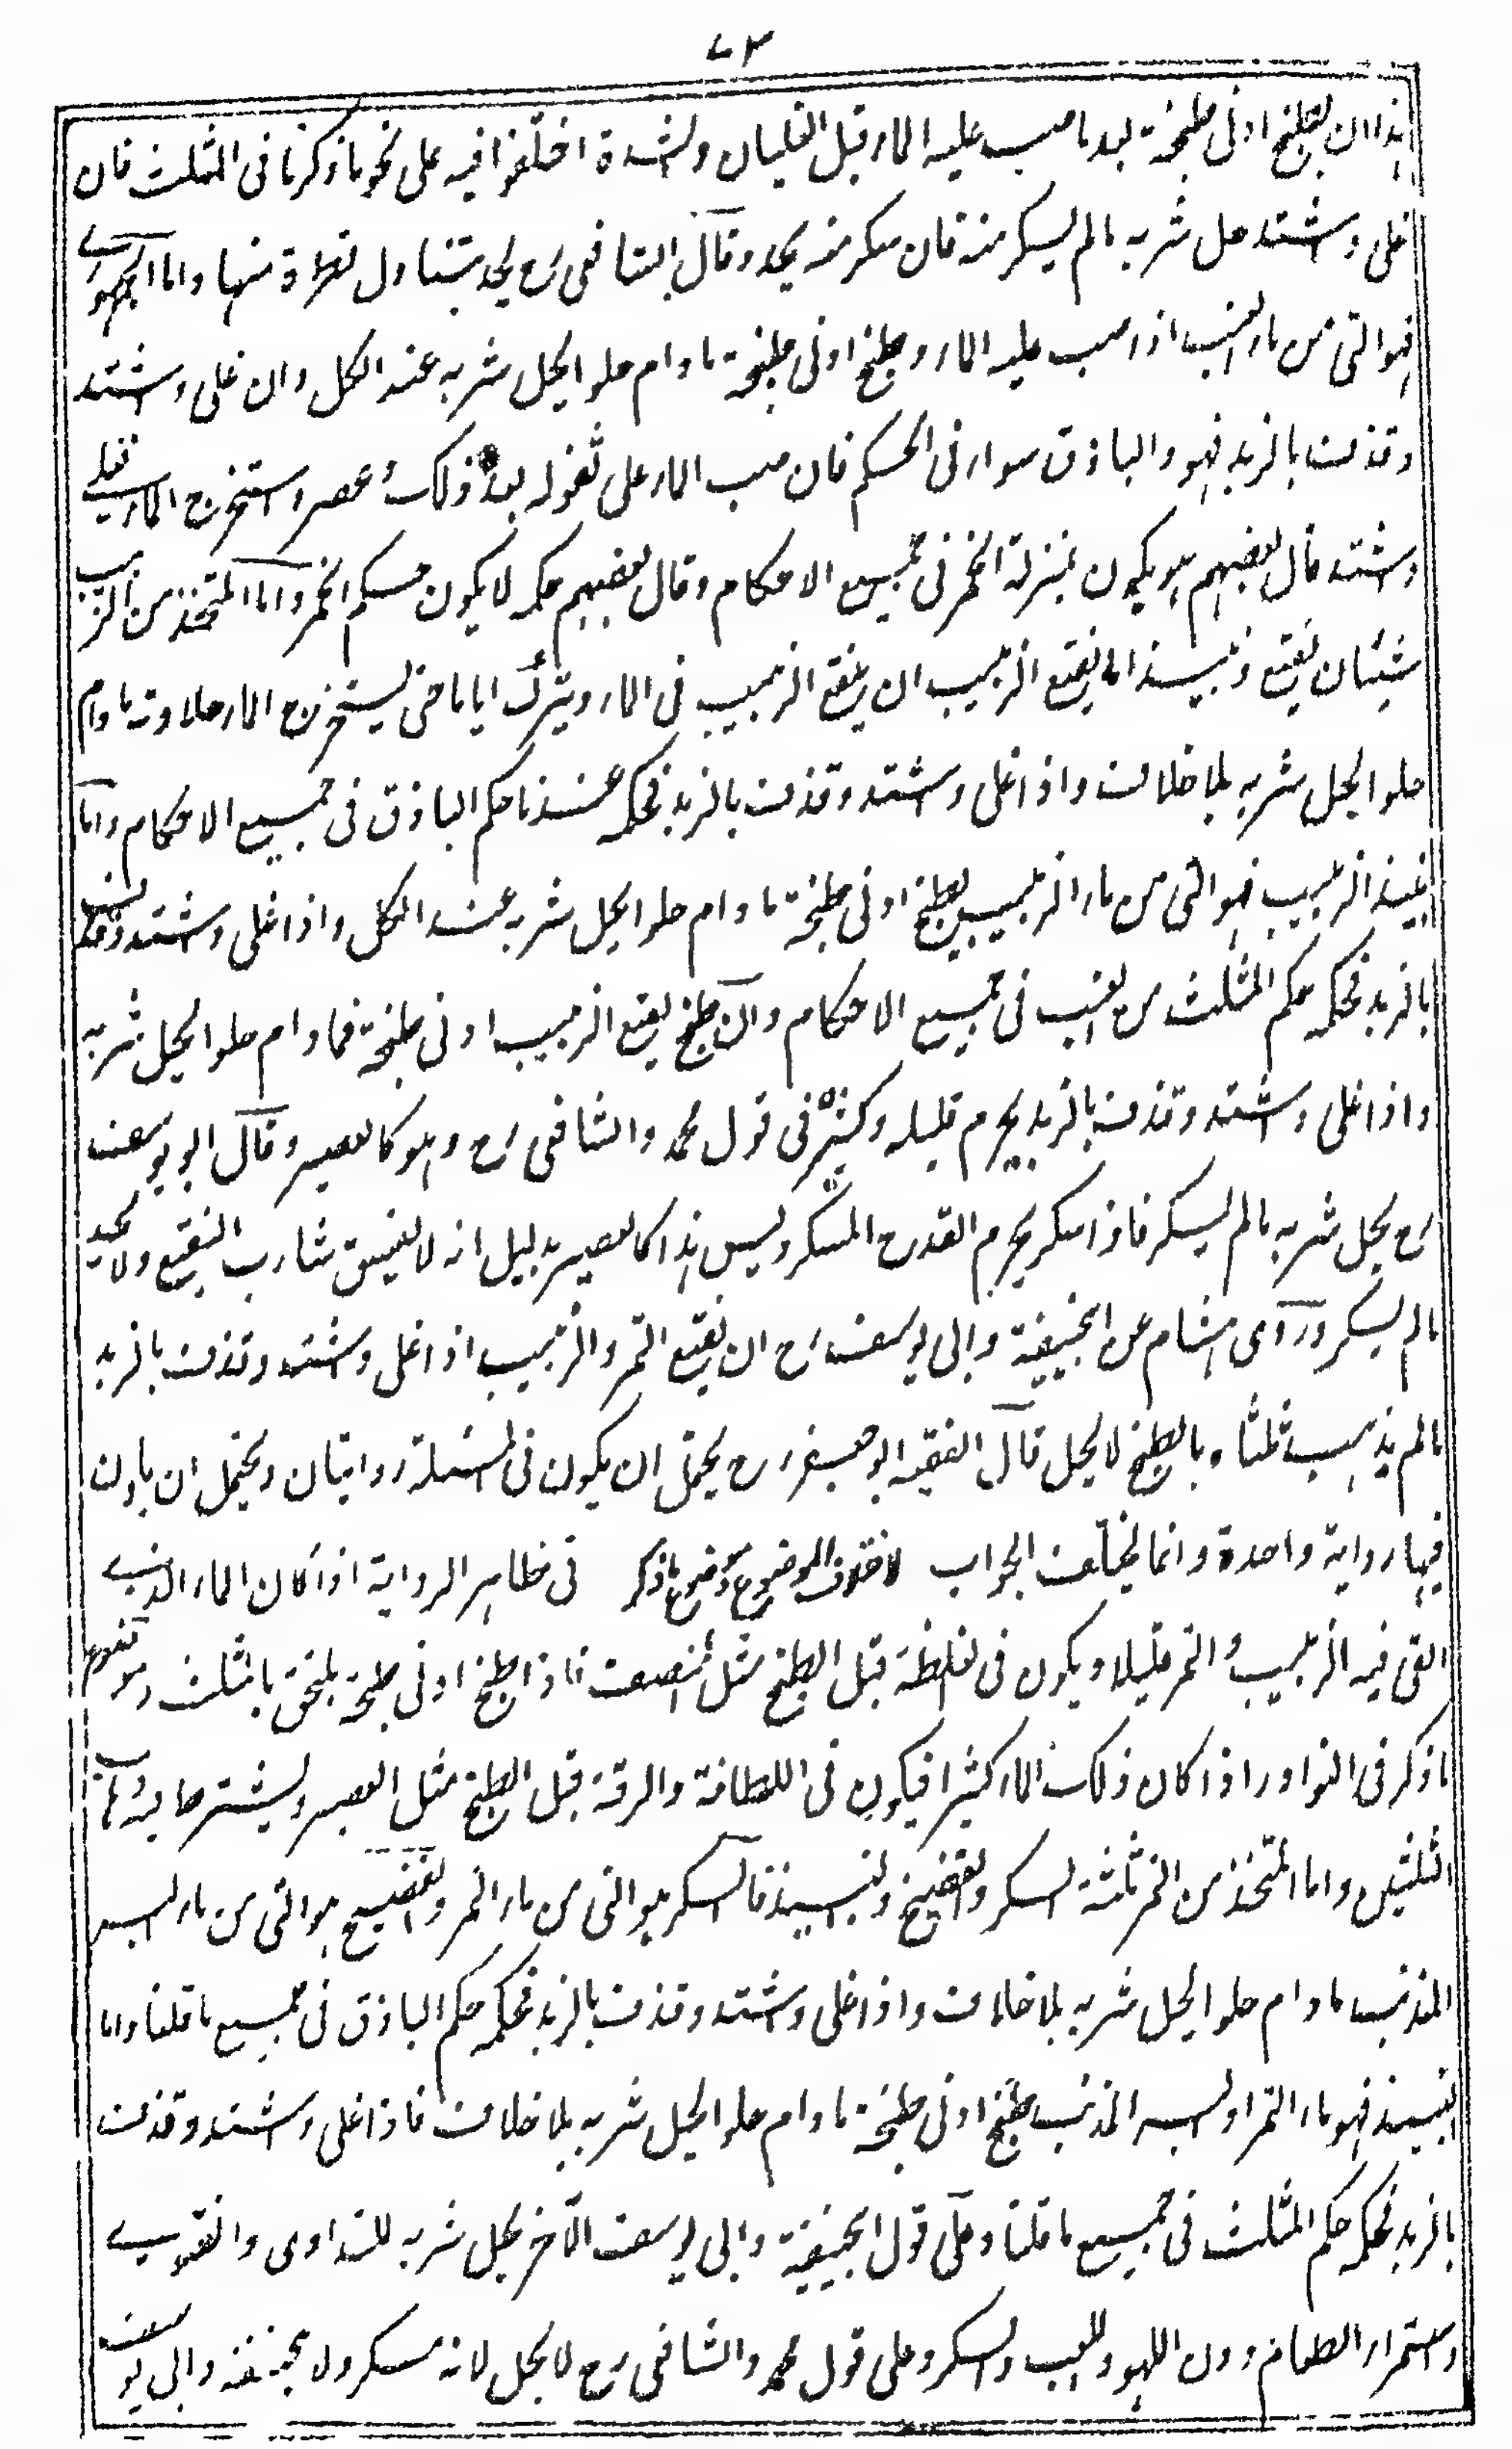 ٧٣
هذا ان يطبخ ادنى طبخة بعد ما صب عليه الماء قبل الغليان والشدة اختلفوا فيه على نحو ما ذكرنا فى المثلث فان
غلى واشتد حل شربه ما لم يسكر منه فان سكر منه يحد وقال الشافعى رح يحد بتناول قطرة منها واما الجمهورى
فهو التى من ماء العنب اذا صب عليه الماء وطبخ ادنى طبخة ما دام حلوا يحل شربه عند الكل وان غلى واشتد
وقذف بالزبد فهو والباذق سواء فى الحكم فان صب الماء على ثفوله بعد ذلك وعصر واستخرج الماء فغلى
واشتد قال بعضهم هو يكون بمنزلة الخمر فى جميع الاحكام وقال بعضهم حكمه لا يكون حكم الخمر واما المتخذ من الزبيب
شيئان نقيع ونبيذ اما نقيع الزبيب ان ينقع الزبيب فى الماء ويترك اياما حتى يستخرج الماء حلاوته ما دام
حلوا يحل شربه بلا خلاف واذا غلى واشتد وقذف بالزبد فحكمه عندنا حكم الباذق فى جميع الاحكام واما
نبيذ الزبيب فهو التى من ماء الزبيب يطبخ ادنى طبخة ما دام حلوا يحل شربه عند الكل واذا غلى واشتد وقذف
بالزبد فحكمه حكم المثلث من العنب فى جميع الاحكام وان طبخ نقيع الزبيب ادنى طبخة فما دام حلوا يحل شربه
واذا غلى واشتد وقذف بالزبد يحرم قليله وكثيره فى قول محمد والشافعى رح وهو كالعصير وقال ابو يوسف
رح يحل شربه ما لم يسكر فاذا اسكر يحرم القدح المسكر وليس هذا كالعصير بدليل انه لا يفسق شارب النقيع ولا يحد
ما لم يسكر وروى هشام عن ابحنيفة وابى يوسف رح ان نقيع التمر والزبيب اذا غلى واشتد وقذف بالزبد
ما لم يذهب ثلثاه بالطبخ لا يحل قال الفقيه ابو جعفر رح يحتمل ان يكون فى المسئلة روايتان ويحتمل ان يكون
فيها رواية واحدة وانما يختلف الجواب لاختلاف الموضوع موضوع ما ذكر فى ظاهر الرواية اذا كان الماء الذى
القى فيه الزبيب والتمر قليلا ويكون فى غلظة قبل الطبخ مثل المنصف فاذا طبخ ادنى طبخة يلحق بالمثلث وموضوع
ما ذكر فى النوادر اذا كان ذلك الماء كثيرا فيكون فى اللطافة والرقة قبل الطبخ مثل العصير ويشترط فيه ذهاب
الثلثين واما المتخذ من التمر ثلثة السكر والفضيخ والنبيذ فالسكر هو التى من ماء التمر والفضيخ هو التى من ماء البسر
المذنب ما دام حلوا يحل شربه بلا خلاف واذا غلى واشتد وقذف بالزبد فحكمه حكم الباذق فى جميع ما قلنا واما
النبيذ فهو ماء التمر او البسر المذنب طبخ ادنى طبخة ما دام حلوا يحل شربه بلا خلاف فاذا غلى واشتد وقذف
بالزبد فحكمه حكم المثلث فى جميع ما قلنا وعلى قول ابحنيفة وابى يوسف الآخر يحل شربه للتداوى والتقوى
واستمراء الطعام دون اللهو واللعب والسكر وعلى قول محمد والشافعى رح لا يحل لانه مسكر ولابحنيفه وابى يوسف